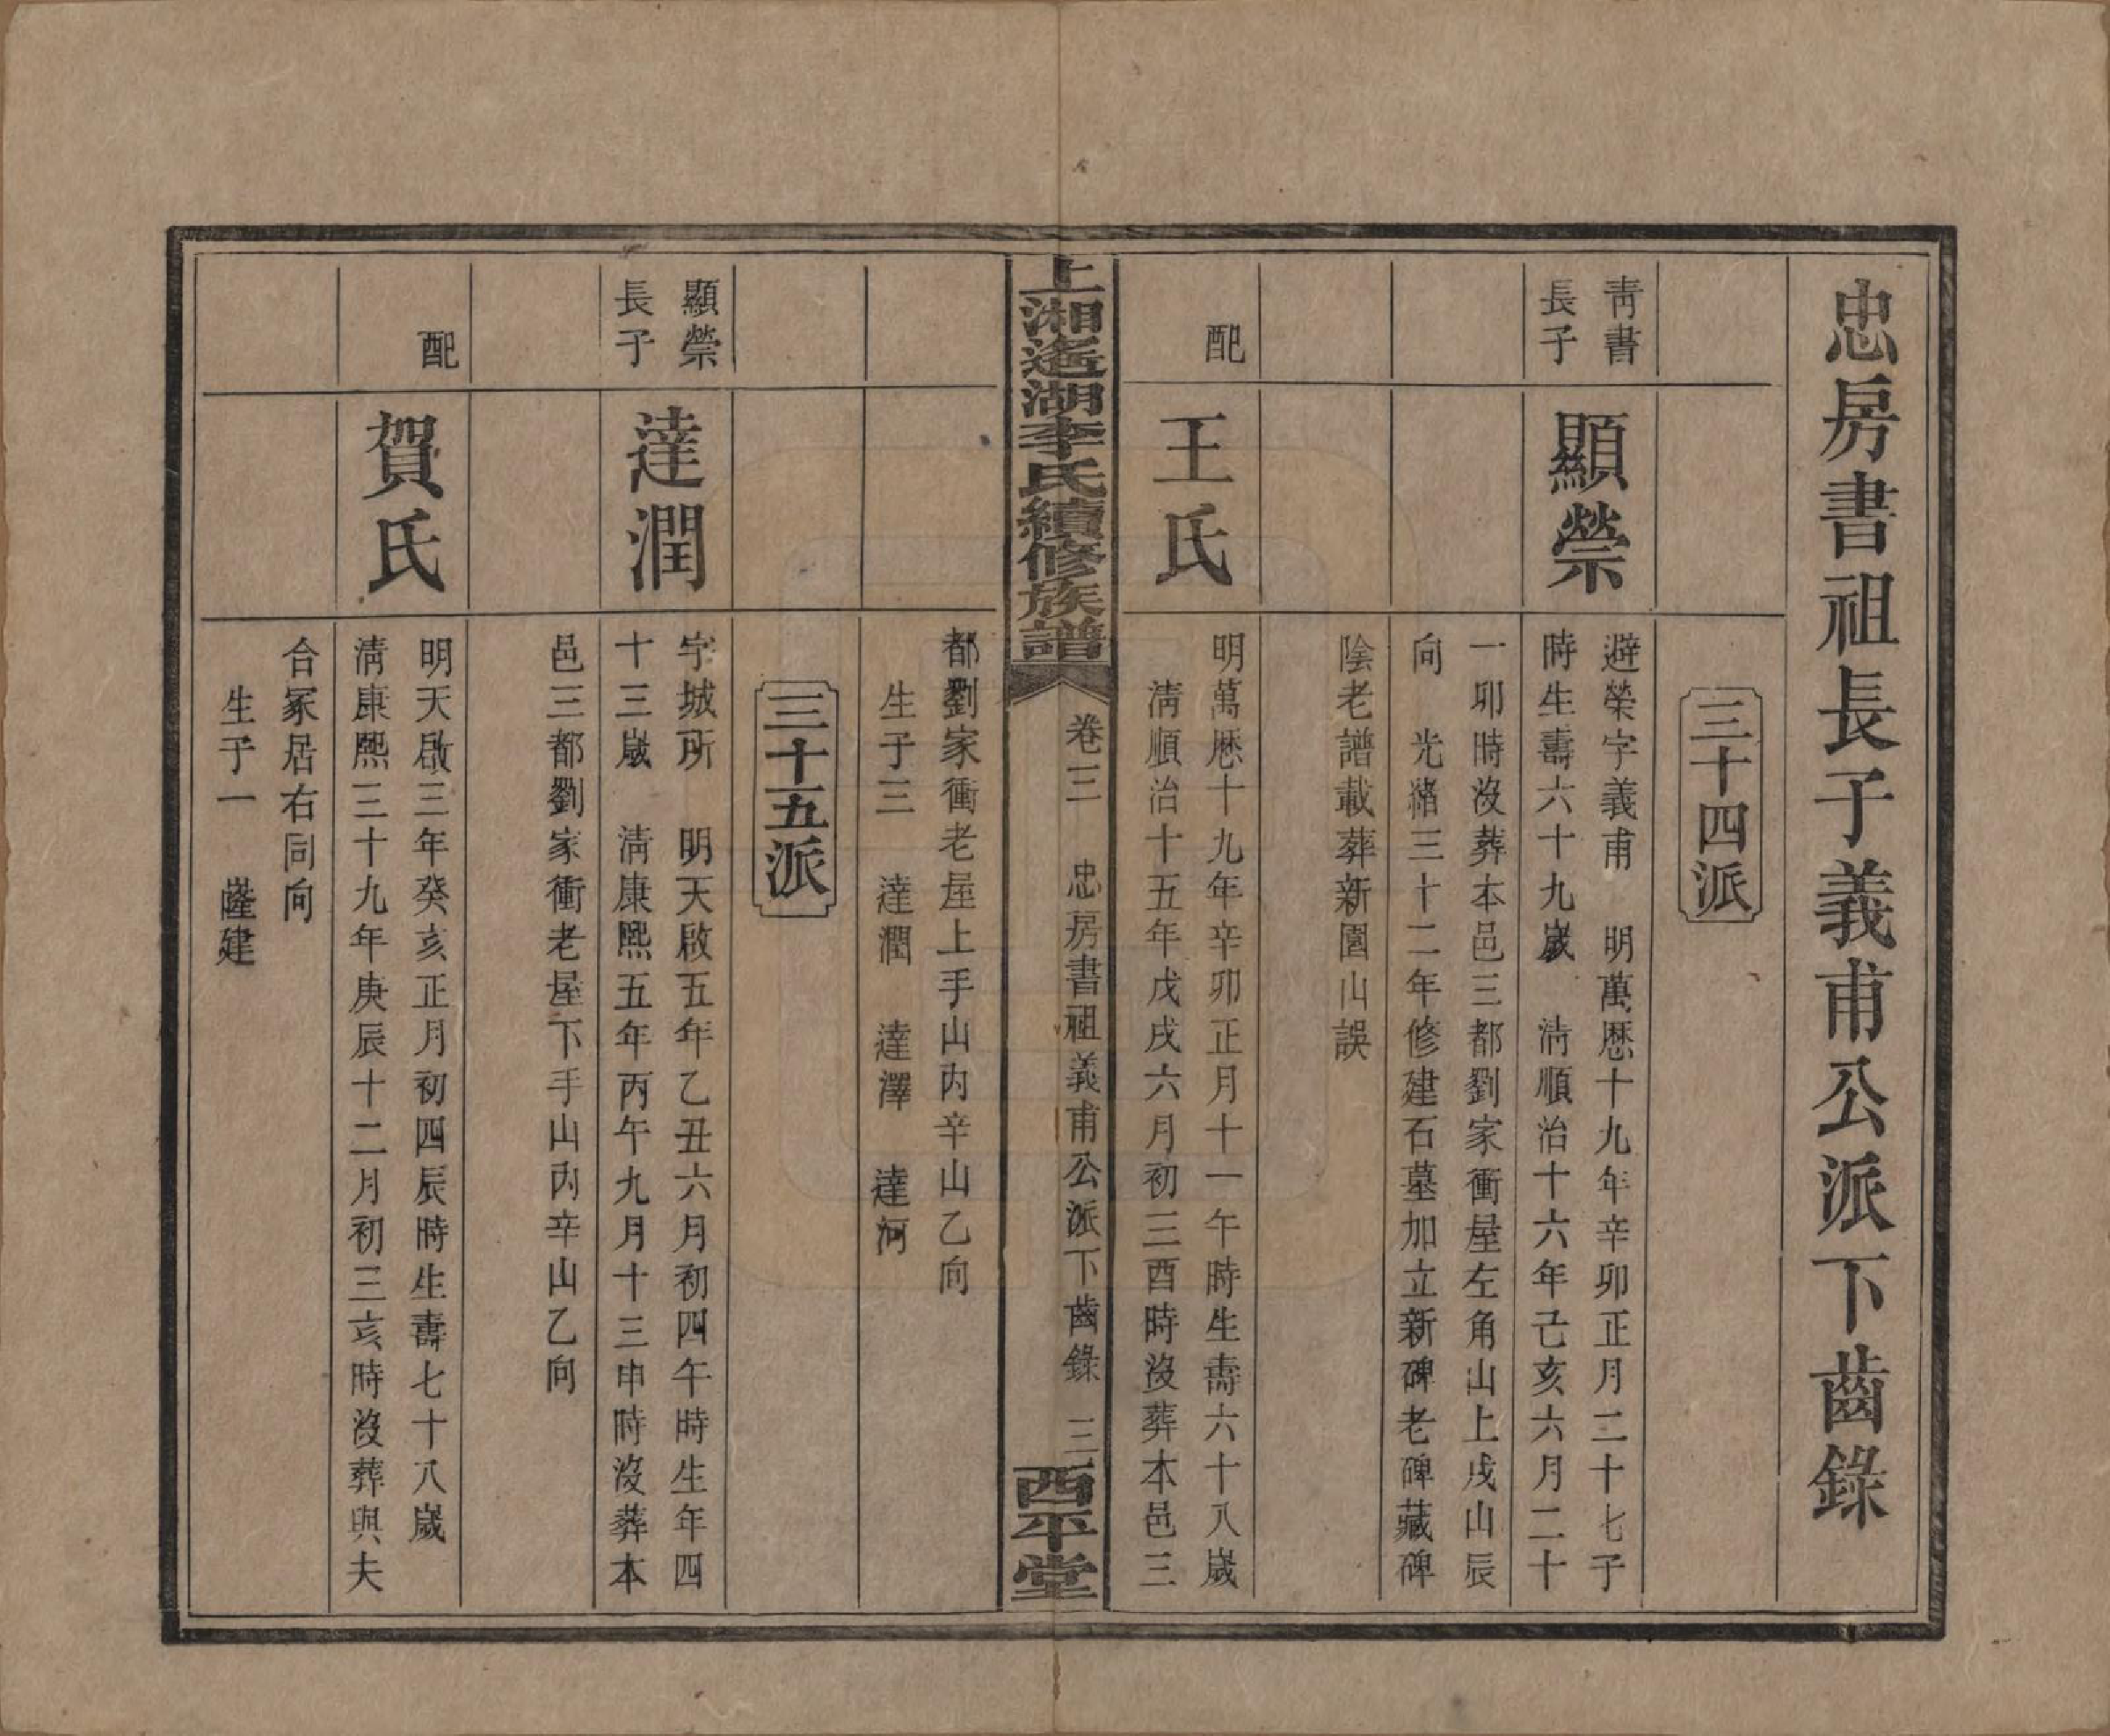 忠房書祖長子義甫公派下齒錄
三十四派
靑書
長子
顯榮
避榮字義甫　明萬歷十九年辛卯正月二十七子
時生壽六十九歲　淸順治十六年己亥六月二十
一卯時沒葬本邑三都劉家衝屋左角山上戌山辰
向　光緒三十二年修建石墓加立新碑老碑藏碑
陰老譜載葬新園山誤
配
王氏
明萬歷十九年辛卯正月十一午時生壽六十八歲
淸順治十五年戊戌六月初三酉時沒葬本邑三
上湘遙湖李氏續修族譜
卷三　忠房書祖義甫公派下齒錄　三
西平堂
都劉家衝老屋上手山內辛山乙向
生子三　達潤　達澤　達河
三十五派
顯榮
長子
達潤
字城所　明天啟五年乙丑六月初四午時生年四
十三歲　淸康熙五年丙午九月十三申時沒葬本
邑三都劉家衝老屋下手山內辛山乙向
配
賀氏
明天啟三年癸亥正月初四辰時生壽七十八歲
淸康熙三十九年庚辰十二月初三亥時沒葬與夫
合冢居右同向
生子一　隆建